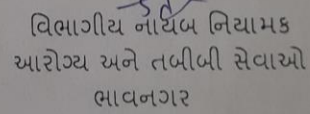 વિભાગીય નાયબ નિયામક
આરોગ્ય અને તબીબી સેવાઓ
ભાવનગર